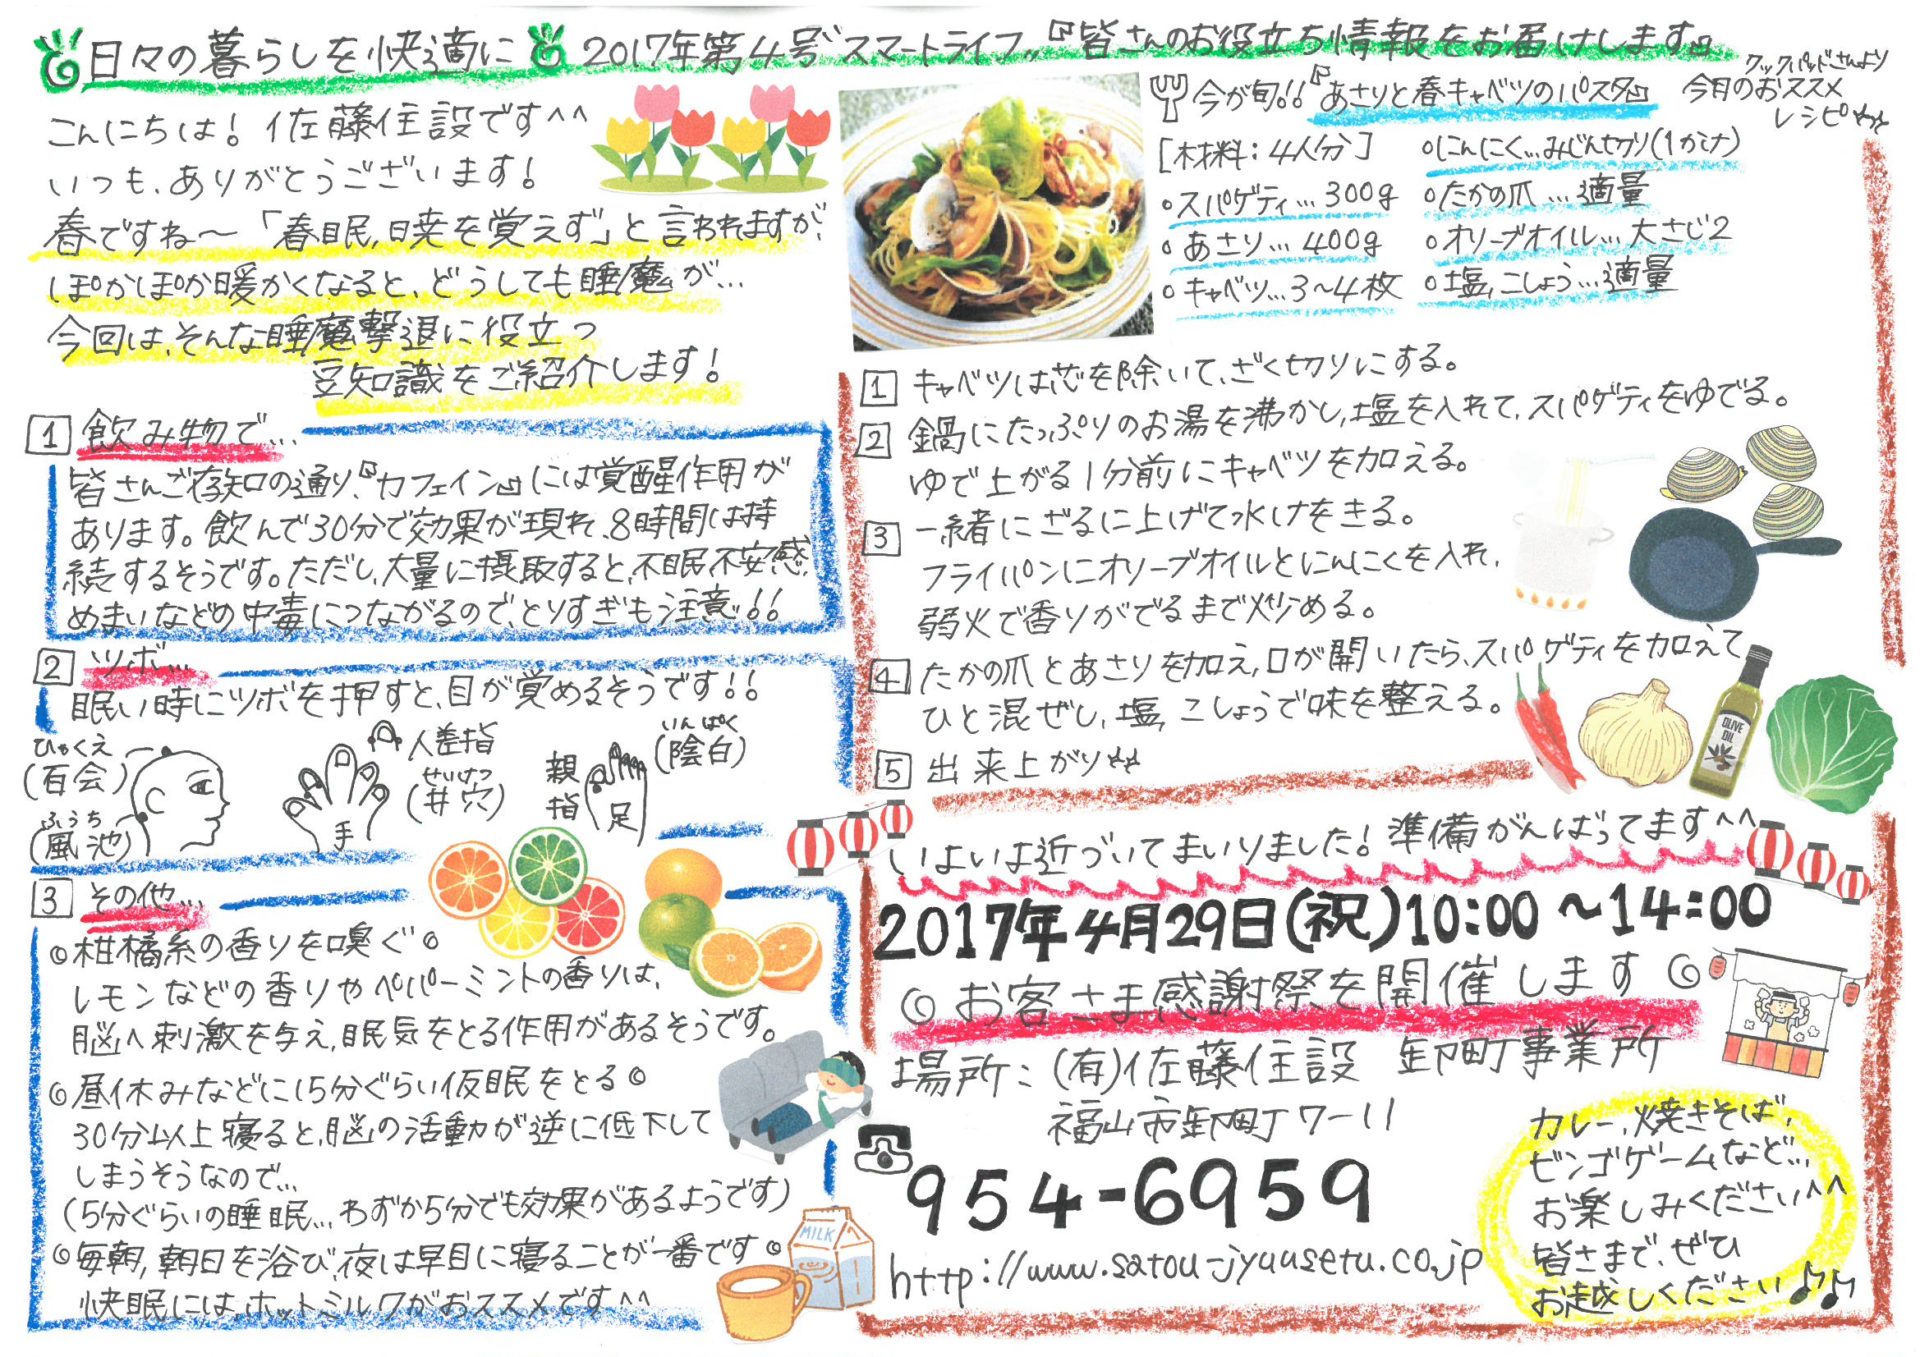 日々の暮らしを快適に 2017年第4号"スマートライフ"『皆さんのお役立ち情報をお届けします』
こんにちは！佐藤住設です^^
いつも、ありがとうございます！
春ですね～「春眠,暁を覚えず」と言われますが、
ぽかぽか暖かくなると、どうしても睡魔が…
今回は、そんな睡魔撃退に役立つ
豆知識をご紹介します！
1 飲み物で…
皆さんご存知の通り、『カフェイン』には覚醒作用が
あります。飲んで30分で効果が現れ、8時間は持
続するそうです。ただし、大量に摂取すると、不眠、不安感、
めまいなどの中毒につながるので、とりすぎも注意!!
2 ツボ…
眠い時にツボを押すと、目が覚めるそうです!!
ひゃくえ
(百会)
ふうち
(風池)
手
人差指
せいけつ
(井穴)
親指
足
いんぱく
(陰白)
3 その他…
◎柑橘系の香りを嗅ぐ◎
レモンなどの香りやペパーミントの香りは、
脳へ刺激を与え、眠気をとる作用があるそうです。
◎昼休みなどに15分ぐらい仮眠をとる◎
30分以上寝ると、脳の活動が逆に低下して
しまうそうなので…
(5分ぐらいの睡眠…わずか5分でも効果があるようです)
◎毎朝,朝日を浴び、夜は早目に寝ることが一番です◎
快眠には、ホットミルクがおススメです^^
MILK
今が旬!!『あさりと春キャベツのパスタ』
クックパッドさんより
今月のおススメ
レシピ☆☆
[材料：4人分]
○スパゲティ…300g
○あさり…400g
○キャベツ…3～4枚
○にんにく…みじん切り(1かけ)
○たかの爪…適量
○オリーブオイル…大さじ2
○塩,こしょう…適量
1 キャベツは芯を除いて、ざく切りにする。
2 鍋にたっぷりのお湯を沸かし、塩を入れて、スパゲティをゆでる。
ゆで上がる1分前にキャベツを加える。
3 一緒にざるに上げて水けをきる。
フライパンにオリーブオイルとにんにくを入れ、
弱火で香りがでるまで炒める。
4 たかの爪とあさりを加え,口が開いたら、スパゲティを加えて
ひと混ぜし,塩,こしょうで味を整える。
5 出来上がり☆☆
OLIVE
OIL
いよいよ近づいてまいりました！準備がんばってます^^
2017年4月29日(祝)10:00～14:00
◎お客さま感謝祭を開催します◎
場所：(有)佐藤住設 卸町事業所
福山市卸町7-11
954-6959
http://www.satou-jyuusetu.co.jp
カレー,焼きそば,
ビンゴゲームなど…
お楽しみください^^
皆さまで、ぜひ
お越しください♪♪